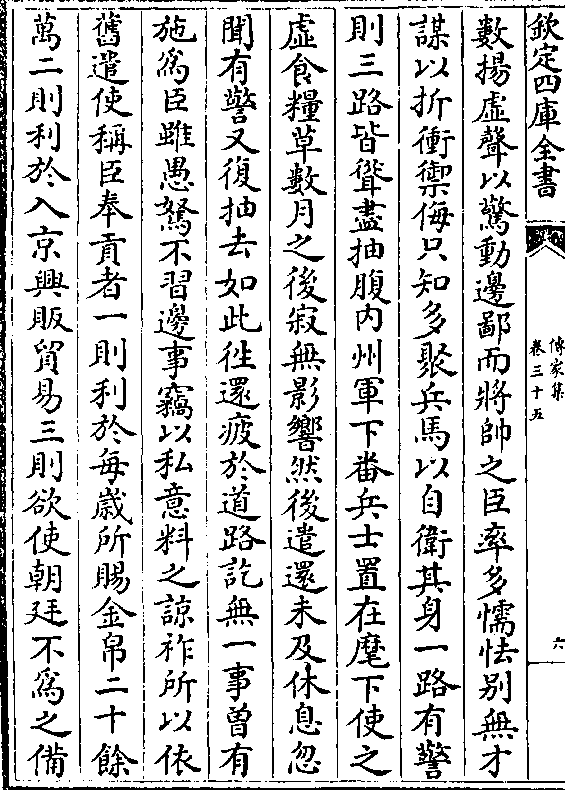 欽定四庫全書
傳家集
卷三十五
六
數揚虛聲以驚動邊鄙而將帥之臣率多懦怯别無才
謀以折衝禦侮只知多聚兵馬以自衛其身一路有警
則三路皆聳盡抽腹内州軍下番兵士置在麾下使之
虛食糧草數月之後寂無影響然後遣還未及休息忽
聞有警又復抽去如此徃還疲於道路訖無一事曾有
施為臣雖愚駑不習邊事竊以私意料之諒祚所以依
舊遣使稱臣奉貢者一則利於每歲所賜金帛二十餘
萬二則利於入京興販貿易三則欲使朝廷不為之備